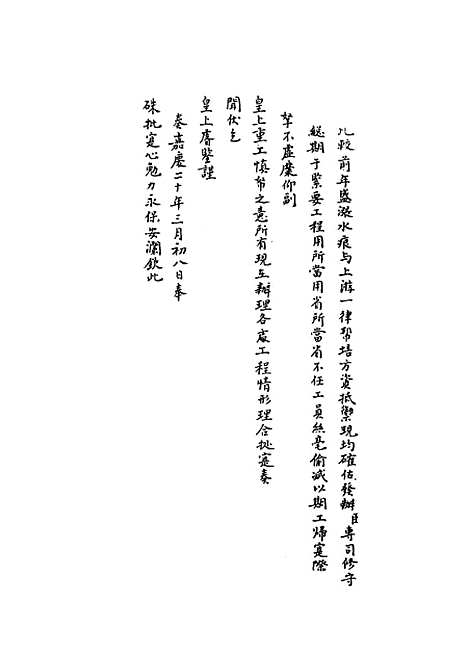 比較前年盛漲水痕与上游一律帮培方資抵禦現均確估發辦臣專司修守
総期于緊要工程用所當用省所當省不任工員絲毫偷減以期工帰寔際
帑不虛糜仰副
皇上重工慎帑之意所有現在辦理各處工程情形理合挑寔奏
聞伏乞
皇上睿鑒謹
奏嘉慶二十年三月初八日奉
硃批寔心勉力永保安瀾欽此